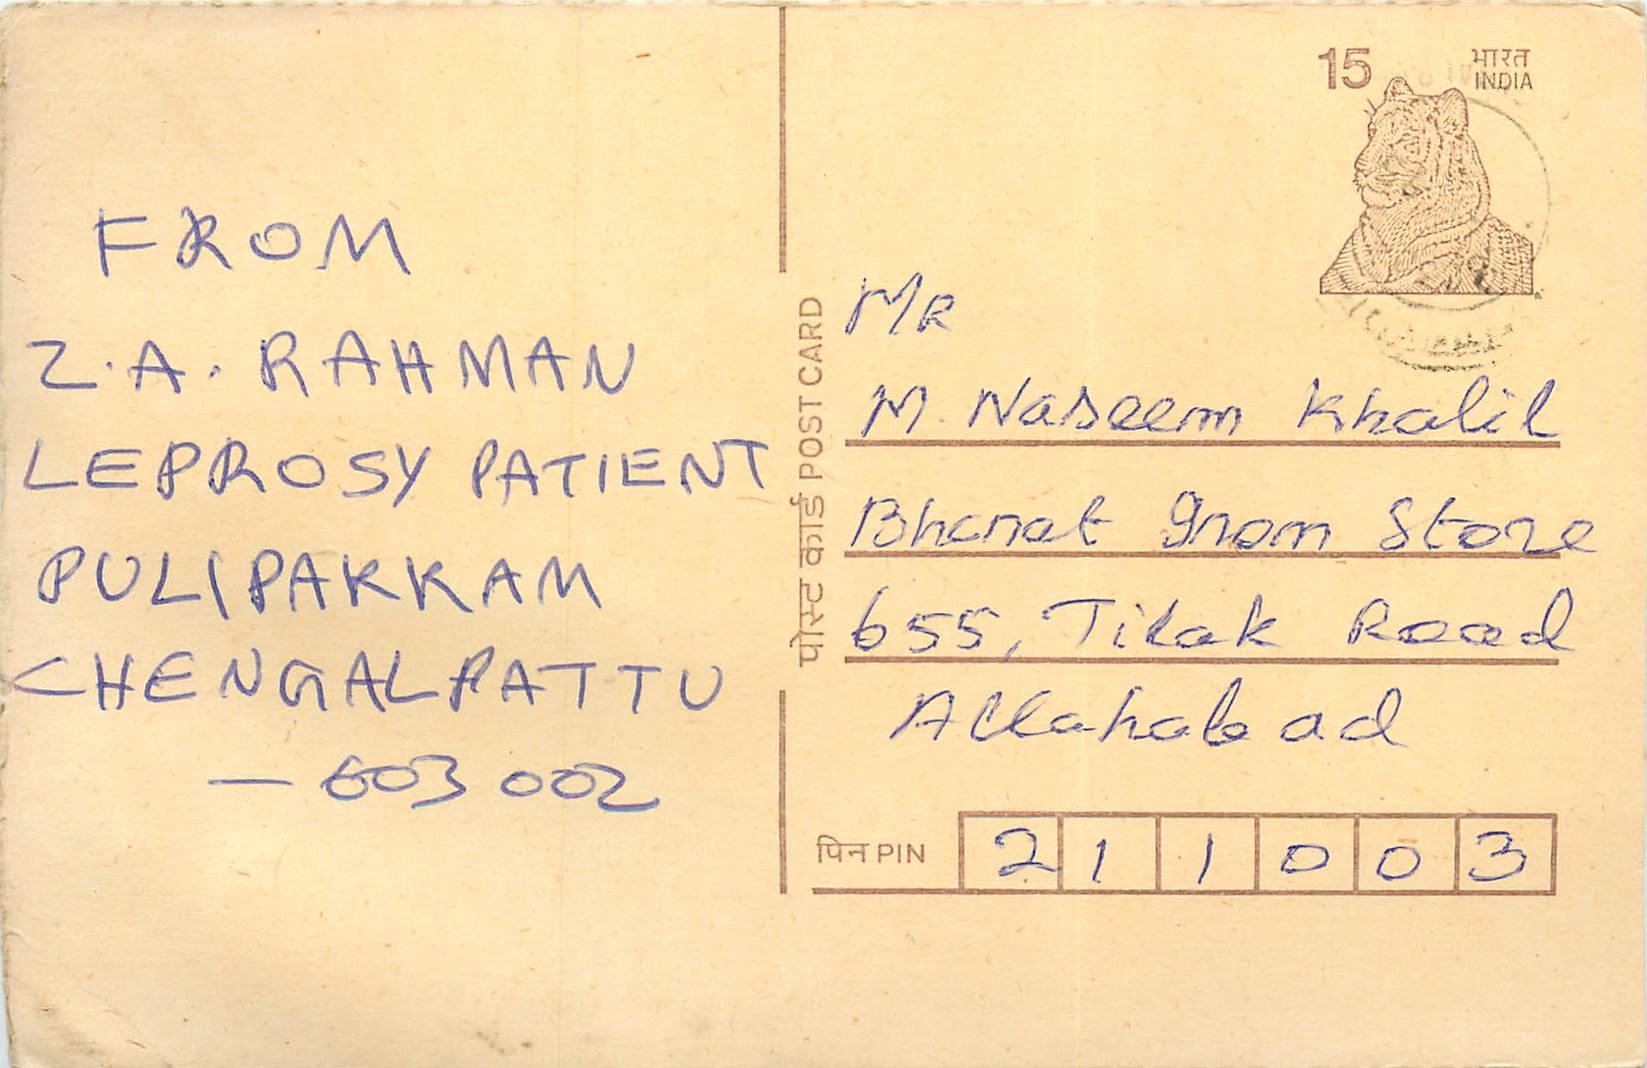 FROM
Z.A. RAHMAN
LEPROSY PATIENT
PULIPAKKAM
CHENGALPATTU
— 603 002
पोस्ट कार्ड POST CARD
15 भारत
INDIA
MR
M. Naseem Khalil
Bharat Iron Store
655, Tilak Road
Allahabad
पिन PIN 2 1 1 0 0 3